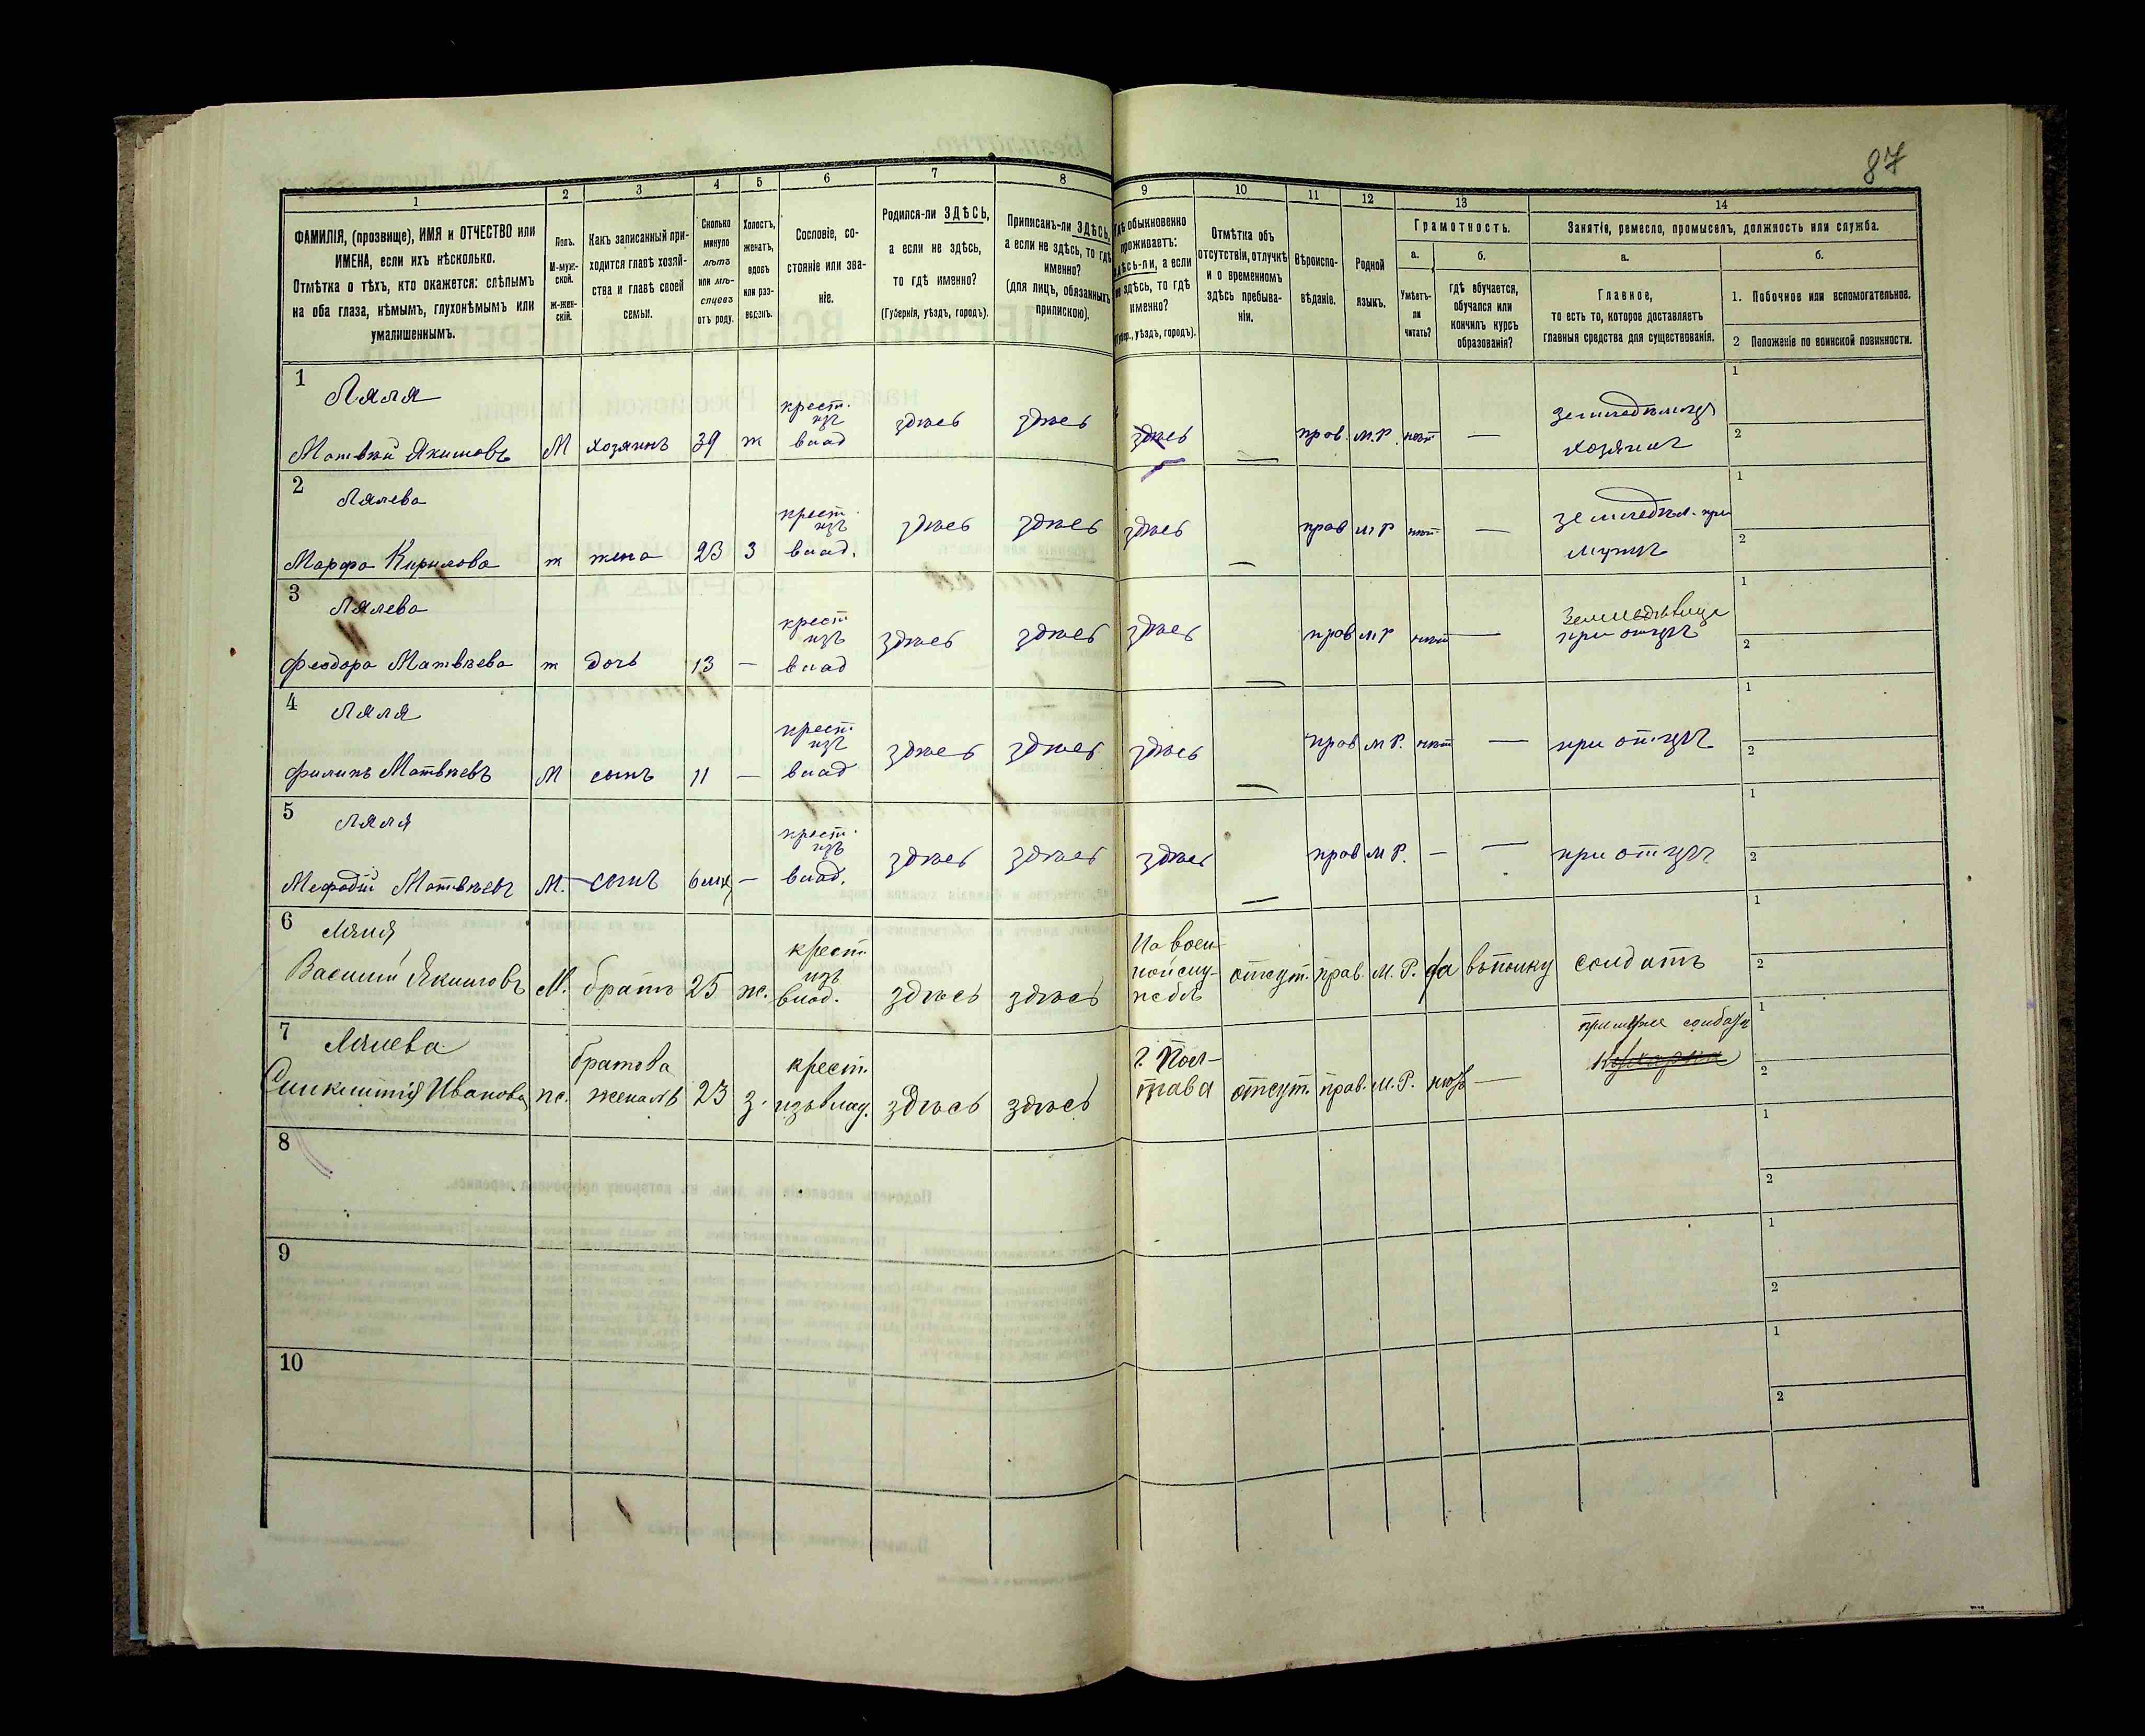 87
1
2
3
4
5
6
7
8
9
10
11
12
13
14
ФАМИЛІЯ, (прозвище), ИМЯ и ОТЧЕСТВО или
ИМЕНА, если ихъ нѣсколько.
Отмѣтка о тѣхъ, кто окажется: слѣпымъ
на оба глаза, нѣмымъ, глухонѣмымъ или
умалишеннымъ.
Полъ.
М-муж-
ской.
ж-жен-
скій.
Какъ записанный при-
ходится главѣ хозяй-
ства и главѣ своей
семьи.
Сколько
минуло
лѣтъ
или мѣ-
сяцевъ
отъ роду.
Холостъ,
женатъ,
вдовъ
или раз-
веденъ.
Сословіе, со-
стояніе или зва-
ніе.
Родился-ли ЗДѢСЬ,
а если не здѣсь,
то гдѣ именно?
(Губернія, уѣздъ, городъ).
Приписанъ-ли ЗДѢСЬ,
а если не здѣсь, то гдѣ
именно?
(для лицъ, обязанныхъ
припискою).
Гдѣ обыкновенно
проживаетъ:
здѣсь-ли, а если
не здѣсь, то гдѣ
именно?
(Губер., уѣздъ, городъ).
Отмѣтка объ
отсутствіи, отлучкѣ
и о временномъ
здѣсь пребыва-
ніи.
Вѣроиспо-
вѣданіе.
Родной
языкъ.
Грамотность.
а.
Умѣетъ-
ли
читать?
б.
гдѣ обучается,
обучался или
кончилъ курсъ
образованія?
Занятіе, ремесло, промыселъ, должность или служба.
а.
Главное,
то есть то, которое доставляетъ
главныя средства для существованія.
б.
1. Побочное или вспомогательное.
2 Положеніе по воинской повинности.
1
Ляля
Матвѣй Якимовъ М хозяинъ 39 ж крест. изъ влад здѣсь здѣсь здѣсь — прав. М.Р. нѣт — хозяинъ
1
2
2
Лялева
Марфа Кирилова ж жена 23 з крест. изъ влад. здѣсь здѣсь здѣсь — прав М Р нѣт — земледѣл. при мужѣ
1
2
3
Лялева
Феодора Матвѣева ж дочь 13 — крест изъ влад здѣсь здѣсь здѣсь — прав М Р нѣт — при отцѣ
1
2
4
Ляля
Филипъ Матвѣевъ М сынъ 11 — крест. изъ влад здѣсь здѣсь здѣсь — прав М Р. нѣт — при отцѣ
1
2
5
Ляля
Мефодій Матвѣевъ М. сынъ — крест. изъ влад. здѣсь здѣсь здѣсь — прав М Р. — — при отцѣ
1
2
6
Ляля
Василий Якимовъ М. братъ 25 ж. крест. изъ влад. здѣсь здѣсь На воен-ной слу-жбѣ отсут. прав. М. Р. да въ полку солдатъ
1
2
7
Лялева
Синклитія Иванова ж. братова жена 23 з. крест. изъ влад. здѣсь здѣсь г. Пол-тава отсут. прав. М. Р. —
1
2
8
1
2
9
1
2
10
1
2